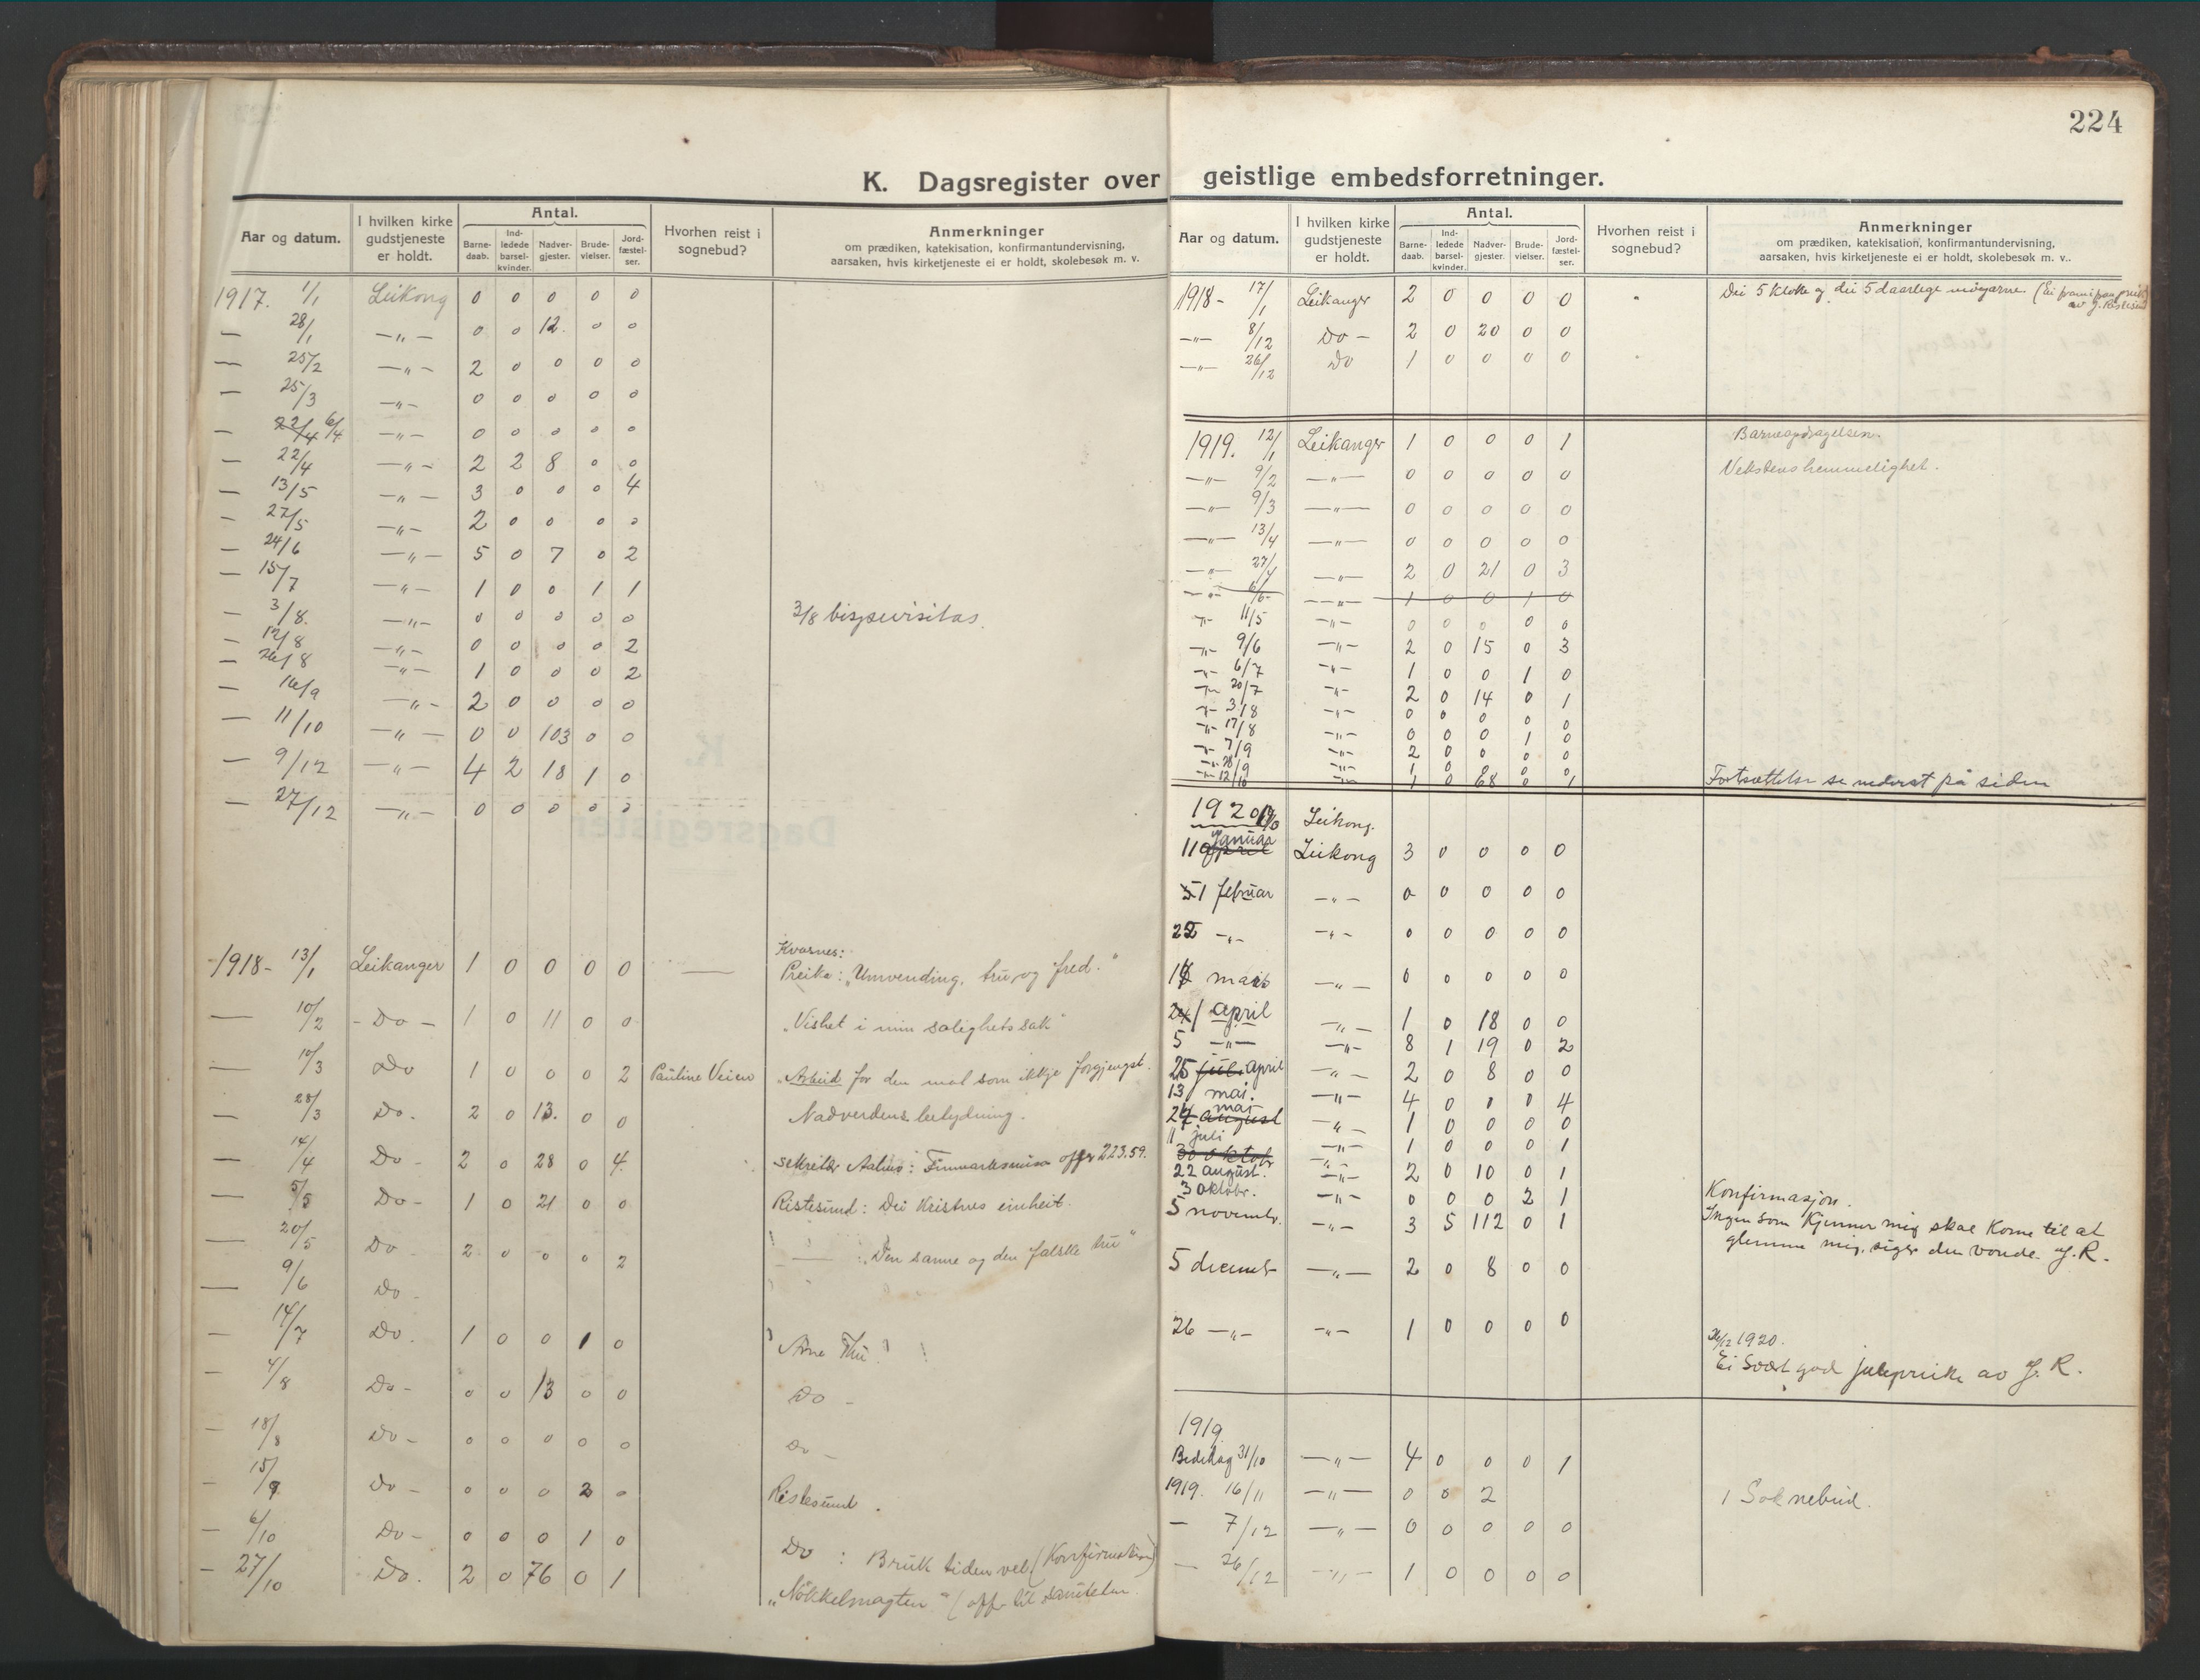 224
K. Dagsregister over geistlige embedsforretninger.
Aar og datum. I hvilken kirke gudstjeneste er holdt. Antal. Barne-daab. Ind-ledede barsel-kvinder. Nadver-gjester. Brude-vielser. Jord-fæstel-ser. Hvorhen reist i sognebud? Anmerkninger om prædiken, katekisation, konfirmantundervisning, aarsaken, hvis kirketjeneste ei er holdt, skolebesøk m. v.
1917. 1/1 Leikong 0 0 0 0 0
— 28/1 —„— 0 0 12. 0 0
— 25/2 —„— 2 0 0 0 0
— 25/3 —„— 0 0 0 0 0
— 22/4 6/4 —„— 0 0 0 0 0
— 22/4 —„— 2 2 8 0 0
— 13/5 —„— 3 0 0 0 4
— 27/5 —„— 2 0 0 0 0
— 24/6 —„— 5 0 7 0 2
— 15/7 —„— 1 0 0 1 1
— 3/8. —„— 0 0 0 0 0 3/8 bispevisitas.
— 12/8 —„— 0 0 0 0 2
— 26/8 —„— 1 0 0 0 2
— 16/9 —„— 2 0 0 0 0
— 11/10 —„— 0 0 103 0 0
— 9/12 —„— 4 2 18 1 0
— 27/12 —„— 0 0 0 0 0
Kvarnes:
1918- 13/1 Leikanger 1 0 0 0 0 — Preike: „Umvending, tru og fred."
— 10/2 - Do - 1 0 11 0 0 „Vishet i min salighets sak"
— 10/3 Do 1 0 0 0 2 Pauline Veien „Arbeid for den mat som ikkje forgjengst.
— 28/3 Do. 2 0 13. 0 0 Nadverdens betydning.
— 14/4 Do - 2 0 28 0 4. sekretær Aahus: Finnmarksmisa offer 223.59.
— 5/5 Do - 1 0 21 0 0 Ristesund: Dei Kristnes einheit.
— 20/5 Do - 2 0 0 0 2 — : „Den sanne og den falske tru"
— 9/6 Do -
— 14/7 Do. 1 0 0 1 0 Arne Thu!
— 4/8 Do - 0 0 13 0 0 Do -
— 18/8 Do - 0 0 0 0 0 Do -
— 15/9 Do - 0 0 0 2 0 Ristesund.
— 6/10 Do - 0 0 0 1 0 Do : Bruk tiden vel (Konfirmation)
- 27/10 Do. 2 0 76 0 1 „Nökkelmagten" (off- til
Aar og datum. I hvilken kirke gudstjeneste er holdt. Antal. Barne-daab. Ind-ledede barsel-kvinder. Nadver-gjester. Brude-vielser. Jord-fæstel-ser. Hvorhen reist i sognebud? Anmerkninger om prædiken, katekisation, konfirmantundervisning, aarsaken, hvis kirketjeneste ei er holdt, skolebesøk m. v..
1918- 17/1 Leikanger 2 0 0 0 0 Dei 5 kloke og dei 5 daarlege møyarne. (Ei framifraa preik
av J. Ristesund
—„— 8/12 Do - 2 0 20 0 0
—„— 26/12 Do 1 0 0 0 0
1919. 12/1 Leikanger 1 0 0 0 1 Barneopdragelsen.
—„— 9/2 —„— 0 0 0 0 0 Vekstens hemmelighet.
—„— 9/3 —„— 0 0 0 0 0
—„— 13/4 —„— 0 0 0 0 0
—„— 27/4 —„— 2 0 21 0 3
—„— 6/6- —„— 1 0 0 1 0
-„- 11/5 —„— 0 0 0 0 0
-„- 9/6 —„— 2 0 15 0 3
-„- 6/7 —„— 1 0 0 1 0
-„- 20/7 -„- 2 0 14 0 1
-„- 3/8 -„- 0 0 0 0 0
-„- 17/8 -„- 0 0 0 1 0
-„- 7/9 -„- 2 0 0 0 0
-„- 28/9 -„- 1 0 0 0 0
-„- 12/10 -„- 1 0 68 0 1 Fortsættelse se nederst på siden
1920 Leikong.
11 april januar Leikong 3 0 0 0 0
1 februar —„— 0 0 0 0 0
22 -„- -„- 0 0 0 0 0
mars —„— 0 0 0 0 0
april —„— 1 0 18 0 0
5 —„— —„— 8 1 19 0 2
25 juli april -„- 2 0 8 0 0
13 mai. —„— 4 0 1 0 4
24 august mai —„— 1 0 0 0 0
11 juli —„— 1 0 0 0 1
30 oktob -„-
22 august. —„— 2 0 10 0 1
3 oktobr. —„— 0 0 0 2 1 Konfirmasjon.
5 novembr. —„— 3 5 112 0 1 Ingen som kjenner mig skal kome til at
glemme mig, siger den vonde. J. R.
5 decembr —„— 2 0 8 0 0
26 —„— —„— 1 0 0 0 0 26/12 1920.
Ei svært god julepreike av J. R.
1919
Bededag 31/10 —„— 4 0 0 0 1
1919. 16/11 —„— 0 0 2 1 Soknebud.
— 7/12 —„— 0 0 0 0 0
— 26/12 —„— 1 0 0 0 0